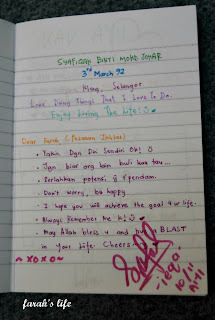 SYAFIQAH BINTI MOHD JOHAR
3rd March 92
Klang, Selangor
Love Doing Things That I Love To Do.
Enjoy Living The Life! :)
Dear Farah, (Pesanan Ikhlas)
• Yakin Dgn Diri Sendiri Ok! :)
• Jgn biar org lain buli kau tau...
• Serlahkan potensi yg terpendam.
• Don't worry, be happy
• I hope you will achieve the goal 4 ur life.
• Always Remember Me k! :)
• May Allah bless u and have a BLAST
in your life. Cheers.
~ XOXO ~
farah's life